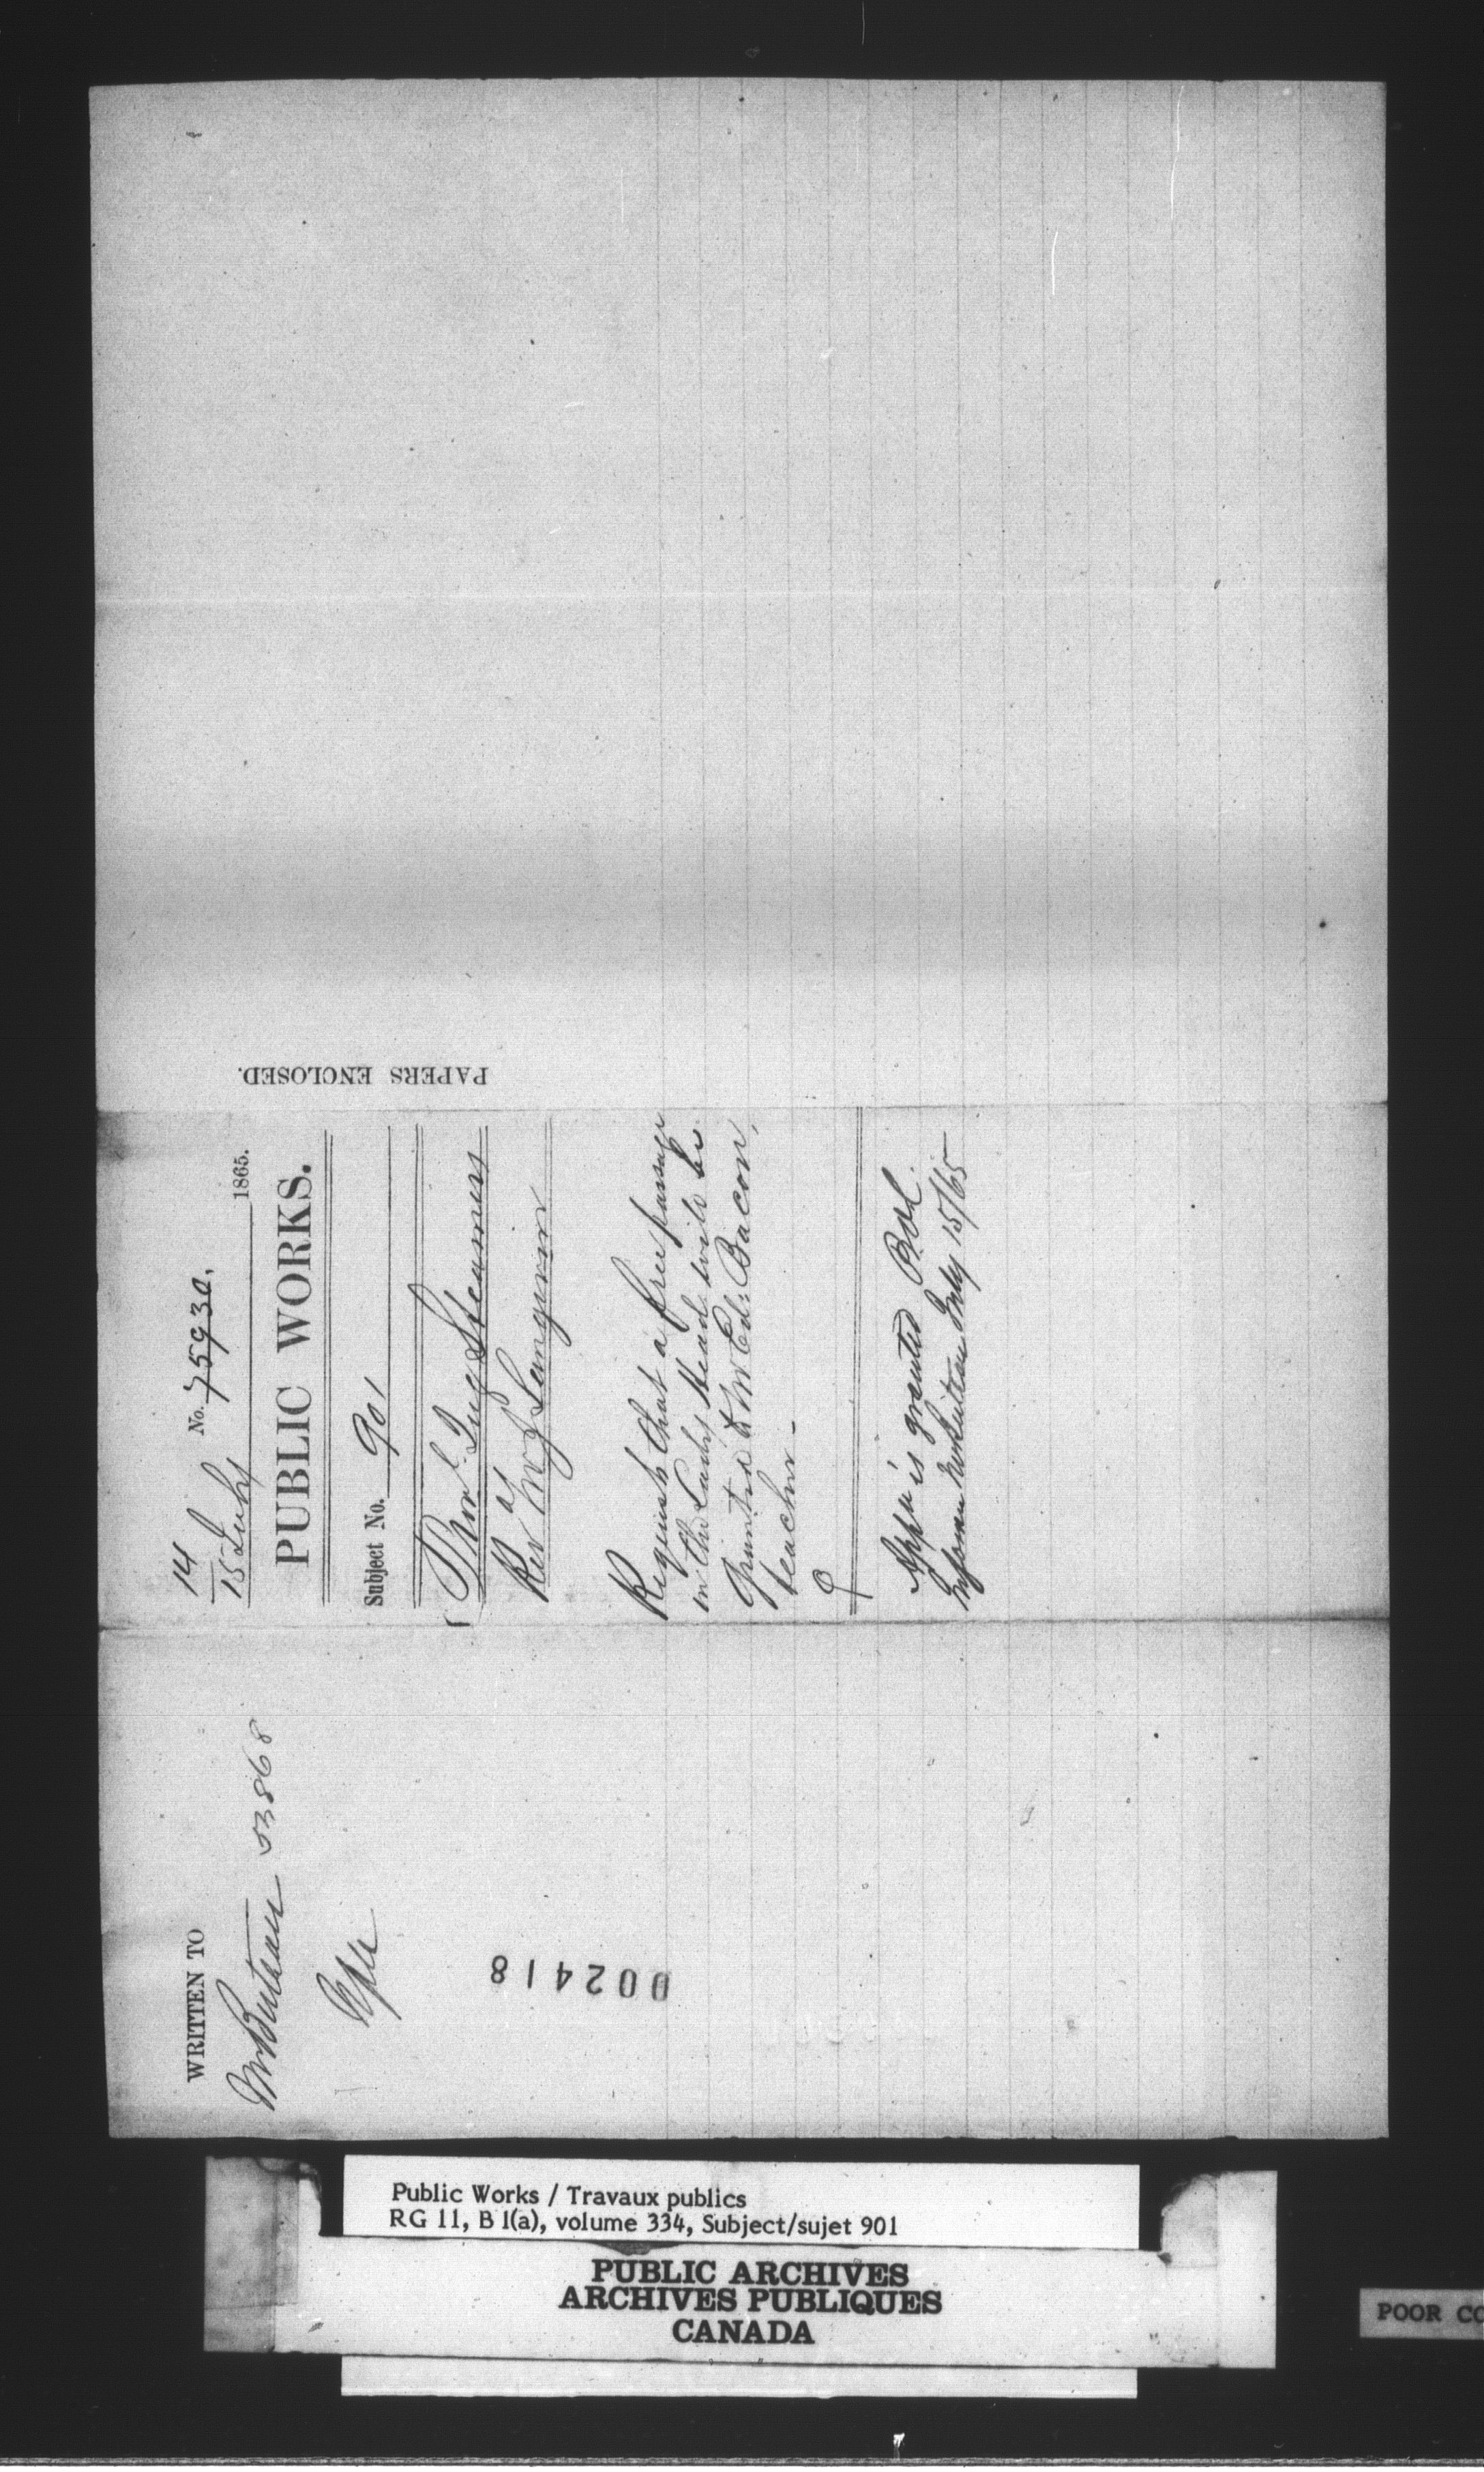 WRITTEN TO
Mr Buteau 53868
002418
14
15 July
No. 75930.
1865.
PUBLIC WORKS.
Subject No. 901
Provl. Tug Steamers
Revd M J Langevin
Requests that a free passage
in the Lady Head will be
granted to Mr Ed. Bacon,
teacher -
Appn is granted
Inform Mr Buteau July 15/65
PAPERS ENCLOSED.
Public Works / Travaux publics
RG 11, B 1(a), volume 334, Subject/sujet 901
PUBLIC ARCHIVES
ARCHIVES PUBLIQUES
CANADA
POOR CO